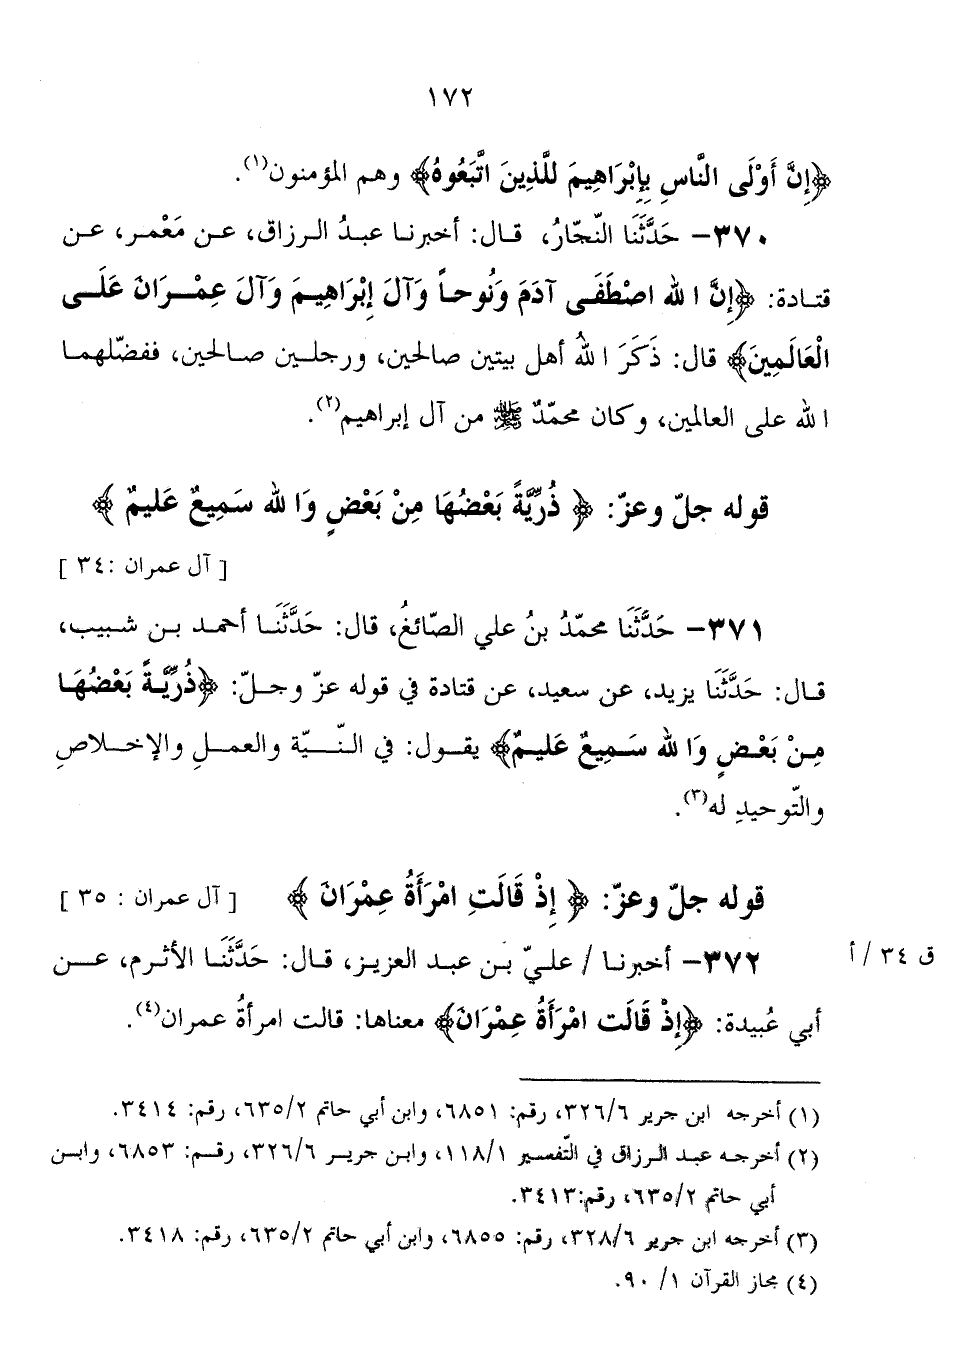 ١٧٢
﴿إِنَّ أَوْلَى النَّاسِ بِإِبْرَاهِيمَ للَّذِينَ اتَّبَعُوهُ﴾ وهم المؤمنون(١).
٣٧٠- حَدَّثَنَا النّجّارُ، قال: أخبرنا عبدُ الرزاق، عن مَعْمر، عن
قتادة: ﴿إِنَّ الله اصْطَفَى آدَمَ وَنُوحاً وَآلَ إِبْرَاهِيمَ وَآلَ عِمْرَانَ عَلَى
الْعَالَمِينَ﴾ قال: ذَكَرَ اللهُ أهل بيتين صالحين، ورجلين صالحين، ففضّلهما
الله على العالمين، وكان محمّدٌ ﷺ من آل إبراهيم(٢).
قوله جلّ وعزّ: ﴿ ذُرِّيَّةً بَعْضُهَا مِنْ بَعْضٍ وَالله سَمِيعٌ عَليمٌ ﴾
[ آل عمران :٣٤ ]
٣٧١- حَدَّثَنَا محمّدُ بنُ علي الصّائغُ، قال: حَدَّثَنَا أحمد بن شبيب،
قال: حَدَّثَنَا يزيد، عن سعيد، عن قتادة في قوله عزّ وجلّ: ﴿ذُرِّيَّةً بَعْضُهَا
مِنْ بَعْضٍ وَالله سَمِيعٌ عَليمٌ﴾ يقول: في النّيّة والعملِ والإخلاصِ
والتّوحيدِ له(٣).
قوله جلّ وعزّ: ﴿ إِذْ قَالَتِ امْرَأَةُ عِمْرَانَ ﴾ [ آل عمران : ٣٥ ]
٣٧٢- أخبرنا / عليّ بن عبد العزيز، قال: حَدَّثَنَا الأثرم، عن
ق ٣٤ / أ
أبي عُبيدة: ﴿إِذْ قَالَت امْرَأَةُ عِمْرَانَ﴾ معناها: قالت امرأةُ عمران(٤).
(١) أخرجه ابن جرير ٣٢٦/٦، رقم: ٦٨٥١، وابن أبي حاتم ٦٣٥/٢، رقم: ٣٤١٤.
(٢) أخرجه عبد الرزاق في التّفسير ١١٨/١، وابن جرير ٣٢٦/٦، رقم: ٦٨٥٣، وابن
أبي حاتم ٦٣٥/٢، رقم:٣٤١٣.
(٣) أخرجه ابن جرير ٣٢٨/٦، رقم: ٦٨٥٥، وابن أبي حاتم ٦٣٥/٢، رقم: ٣٤١٨.
(٤) مجاز القرآن ١/ ٩٠.